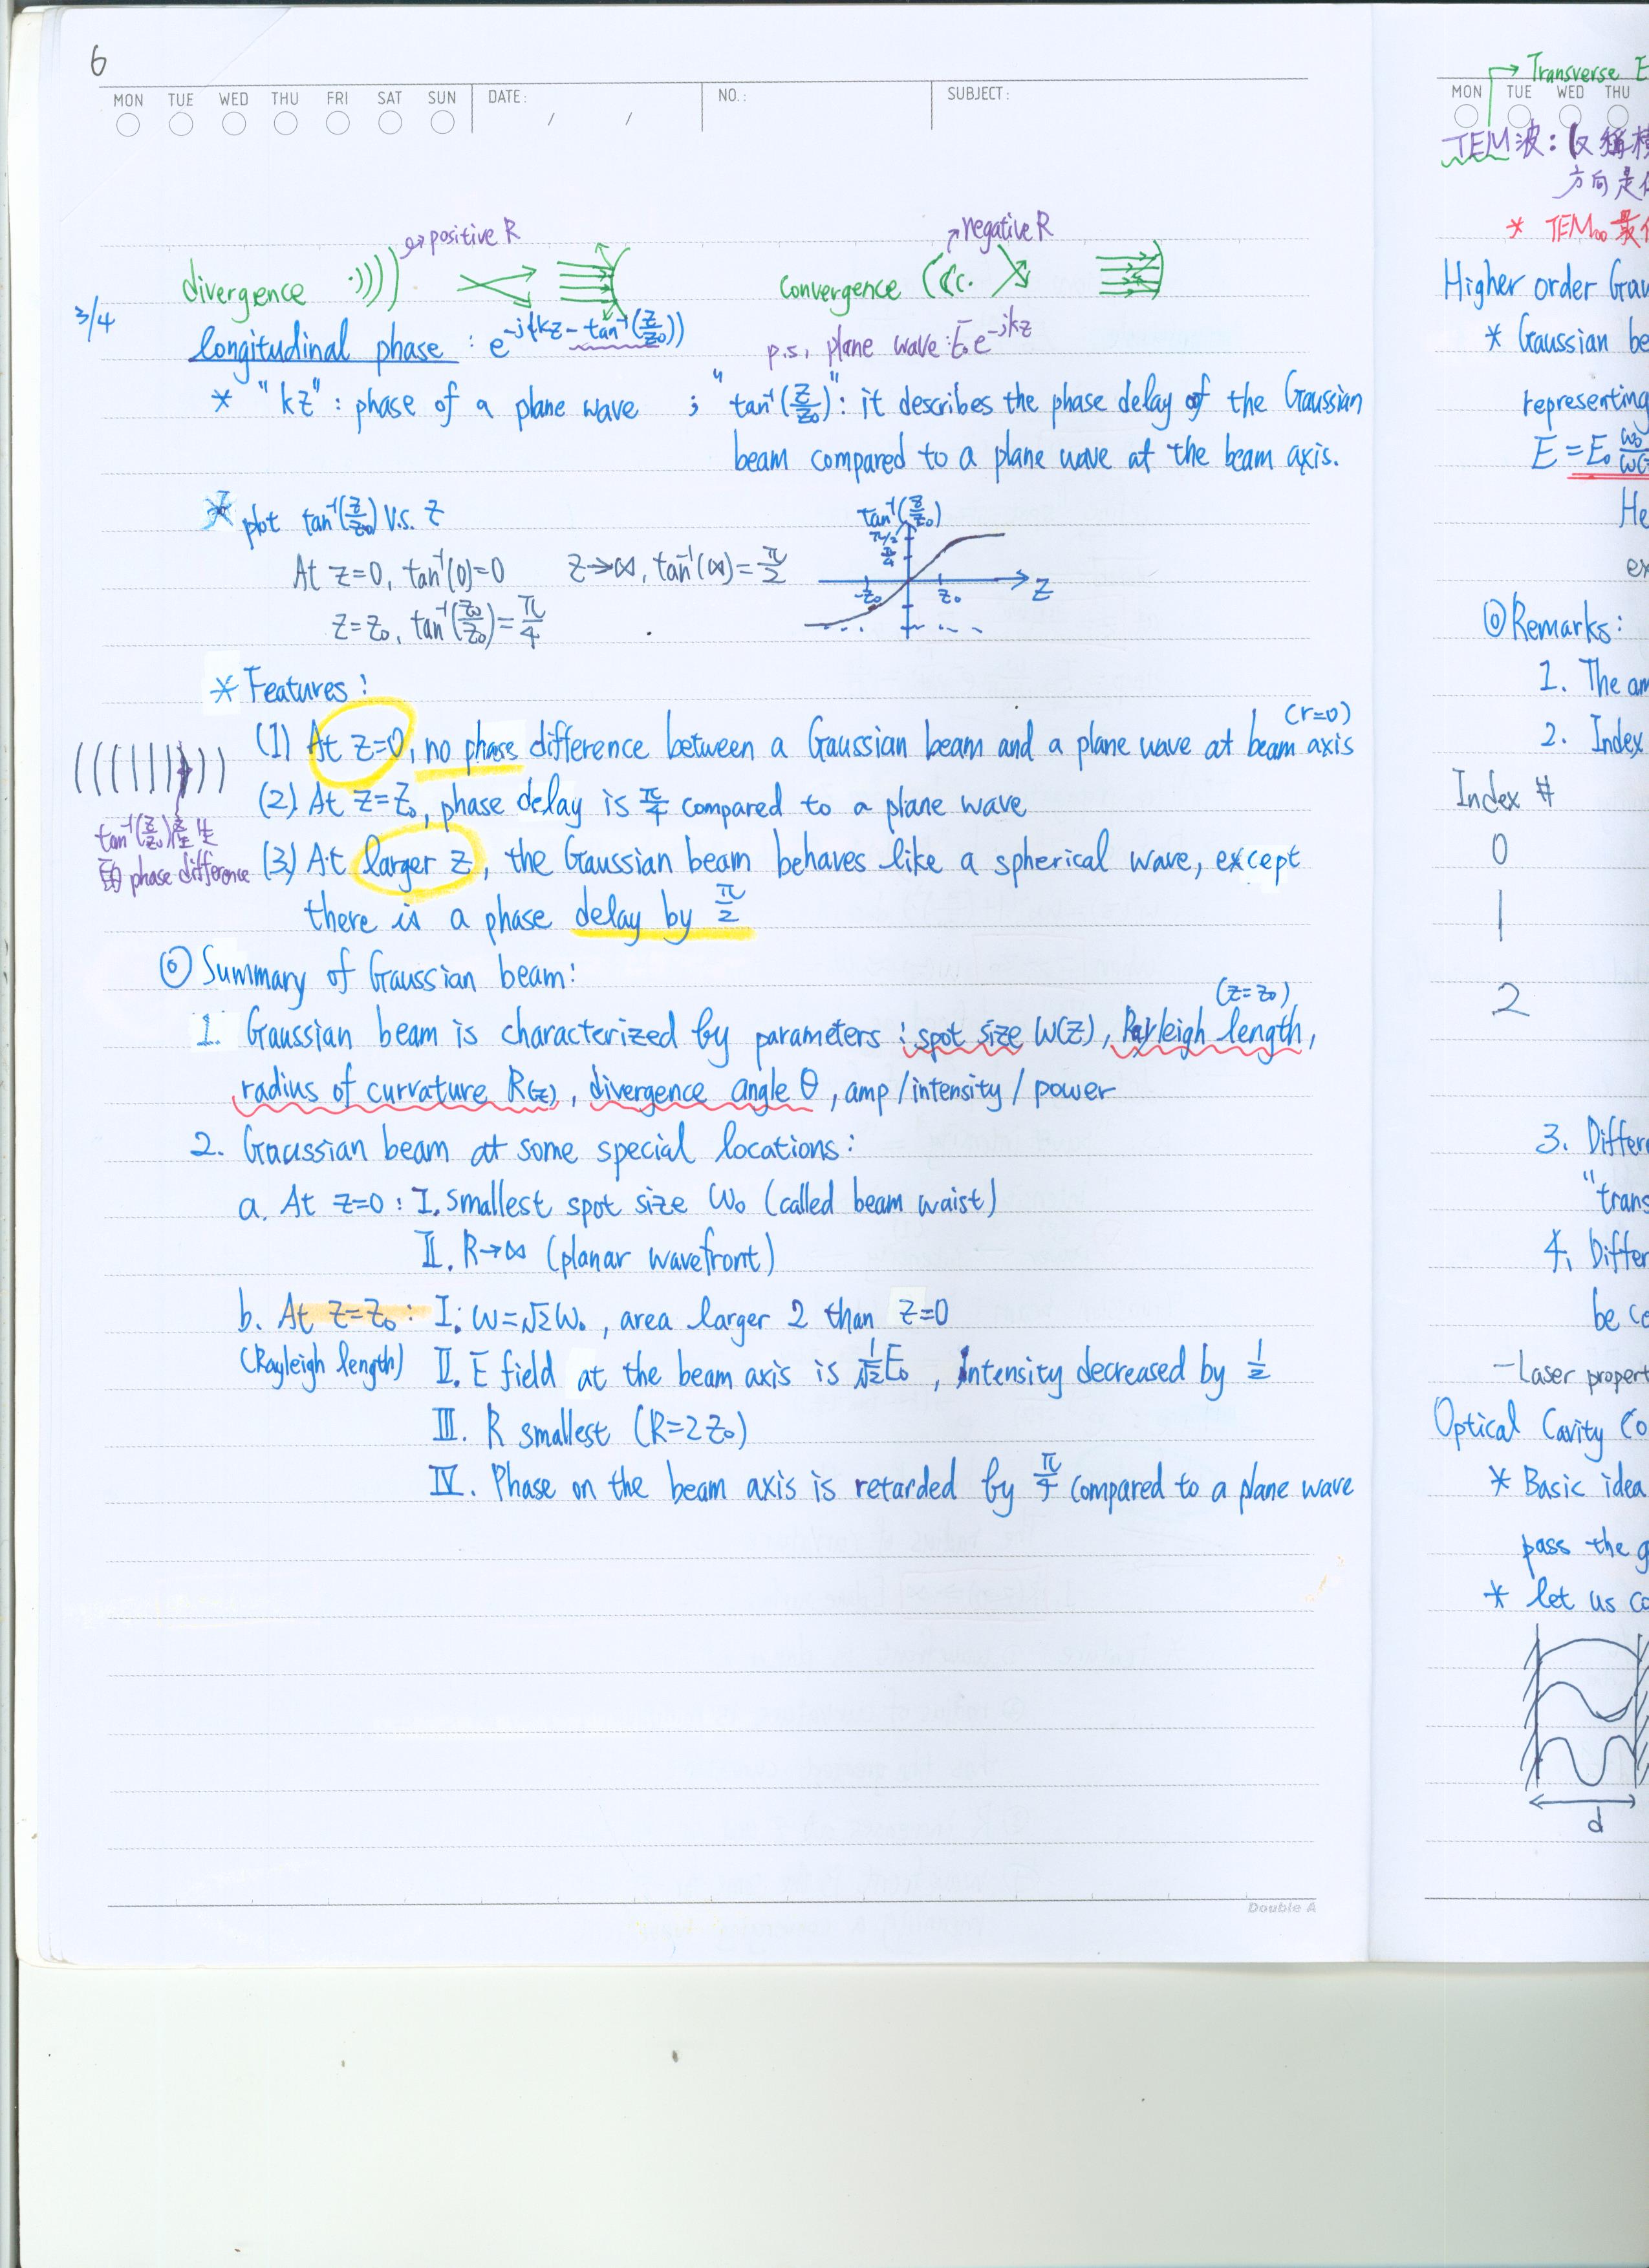 6
MON TUE WED THU FRI SAT SUN DATE: / / NO.: SUBJECT:
↝ positive R
negative R
divergence
convergence
3/4
longitudinal phase : e^{-j(kz - tan⁻¹(z/z₀))}
p.s. plane wave : E₀e^{-jkz}
* "kz" : phase of a plane wave ; "tan⁻¹(z/z₀)" : it describes the phase delay of the Gaussian
beam compared to a plane wave at the beam axis.
* plot tan⁻¹(z/z₀) v.s. z
At z=0, tan⁻¹(0)=0 z→∞, tan⁻¹(∞)=π/2
z=z₀, tan⁻¹(z₀/z₀)=π/4
tan⁻¹(z/z₀)
π/2
π/4
-z₀ z₀ z
* Features :
(1) At z=0, no phase difference between a Gaussian beam and a plane wave at beam axis (r=0)
(2) At z=z₀, phase delay is π/4 compared to a plane wave
tan⁻¹(z/z₀)產生
的 phase difference
(3) At larger z, the Gaussian beam behaves like a spherical wave, except
there is a phase delay by π/2
◎ Summary of Gaussian beam:
1. Gaussian beam is characterized by parameters : spot size w(z), Rayleigh length, (z=z₀)
radius of curvature R(z), divergence angle θ, amp/intensity/power
2. Gaussian beam at some special locations:
a. At z=0 : I. smallest spot size w₀ (called beam waist)
II. R→∞ (planar wavefront)
b. At z=z₀ : I. w=√2w₀, area larger 2 than z=0
(Rayleigh length) II. E field at the beam axis is 1/√2 E₀, Intensity decreased by 1/2
III. R smallest (R=2z₀)
IV. Phase on the beam axis is retarded by π/4 compared to a plane wave
Double A
Transverse E
MON TUE WED THU
TEM波:又稱橫
方向是
* TEM₀₀最
Higher order Gau
* Gaussian be
representing
E = E₀ w₀/w(
He
ex
◎ Remarks:
1. The am
2. Index
Index #
0
1
2
3. Differ
"trans
4. Differ
be co
- Laser propert
Optical Cavity Co
* Basic idea
pass the g
* let us co
d